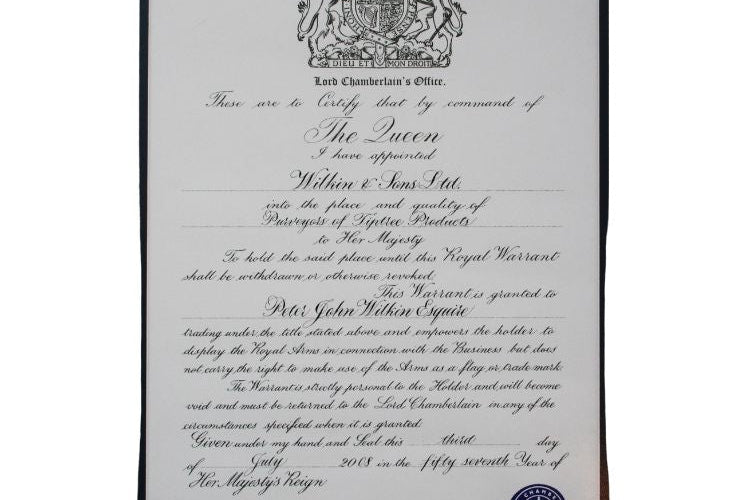 DIEU ET MON DROIT
Lord Chamberlain's Office.
These are to Certify that by command of
The Queen
I have appointed
Wilkin & Sons Ltd.
into the place and quality of
Purveyors of Tiptree Products
to Her Majesty
To hold the said place until this Royal Warrant
shall be withdrawn or otherwise revoked.
This Warrant is granted to
Peter John Wilkin Esquire
trading under the title stated above and empowers the holder to
display the Royal Arms in connection with the Business but does
not carry the right to make use of the Arms as a flag or trade mark.
The Warrant is strictly personal to the Holder and will become
void and must be returned to the Lord Chamberlain in any of the
circumstances specified when it is granted.
Given under my hand and Seal this third day
of July 2008 in the fifty seventh Year of
Her Majesty's Reign
CHAMBER